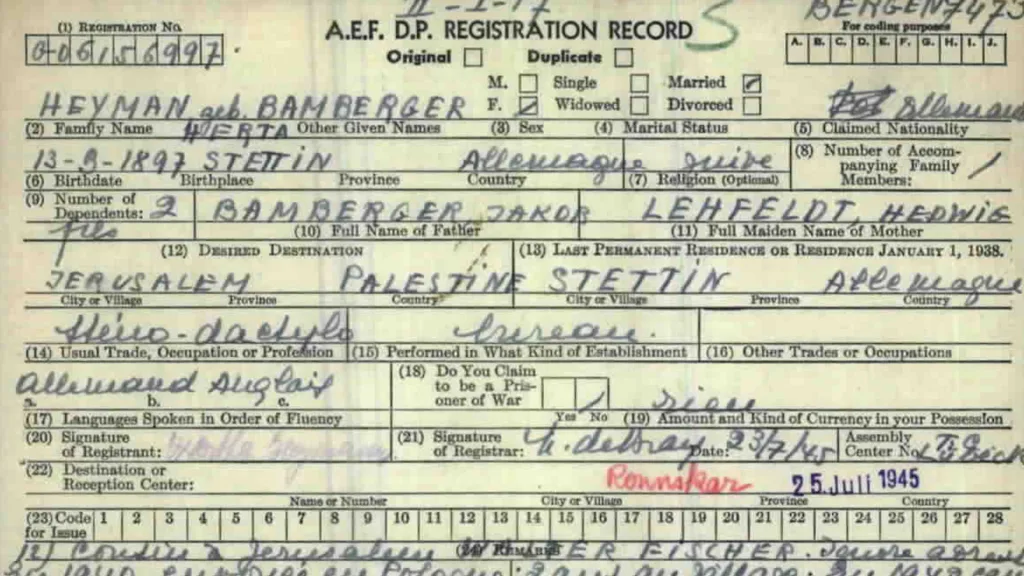 II-1-17
BERGEN 7473
(1) REGISTRATION NO. A.E.F. D.P. REGISTRATION RECORD S For coding purposes
006156997 Original Duplicate A. B. C. D. E. F. G. H. I. J.
M. Single Married
HEYMAN geb. BAMBERGER F. Widowed Divorced Allemand
(2) Family Name HERTA Other Given Names (3) Sex (4) Marital Status (5) Claimed Nationality
13-9-1897 STETTIN Allemagne juive (8) Number of Accompanying Family Members: 1
(6) Birthdate Birthplace Province Country (7) Religion (Optional)
(9) Number of Dependents: 2 BAMBERGER JAKOB LEHFELDT, HEDWIG
fils (10) Full Name of Father (11) Full Maiden Name of Mother
(12) DESIRED DESTINATION (13) LAST PERMANENT RESIDENCE OR RESIDENCE JANUARY 1, 1938.
JERUSALEM PALESTINE STETTIN Allemagne
City or Village Province Country City or Village Province Country
sténo-dactylo bureau.
(14) Usual Trade, Occupation or Profession (15) Performed in What Kind of Establishment (16) Other Trades or Occupations
allemand Anglais (18) Do You Claim to be a Prisoner of War
a. b. c. Yes No
(17) Languages Spoken in Order of Fluency (19) Amount and Kind of Currency in your Possession
(20) Signature of Registrant: (21) Signature of Registrar: Date: 23/7/45 Assembly Center No.
(22) Destination or Reception Center: Ronnskar 25. Juli 1945
Name or Number City or Village Province Country
(23) Code for Issue 1 2 3 4 5 6 7 8 9 10 11 12 13 14 15 16 17 18 19 20 21 22 23 24 25 26 27 28
(24) REMARKS
12) Cousin à Jerusalem FISCHER.